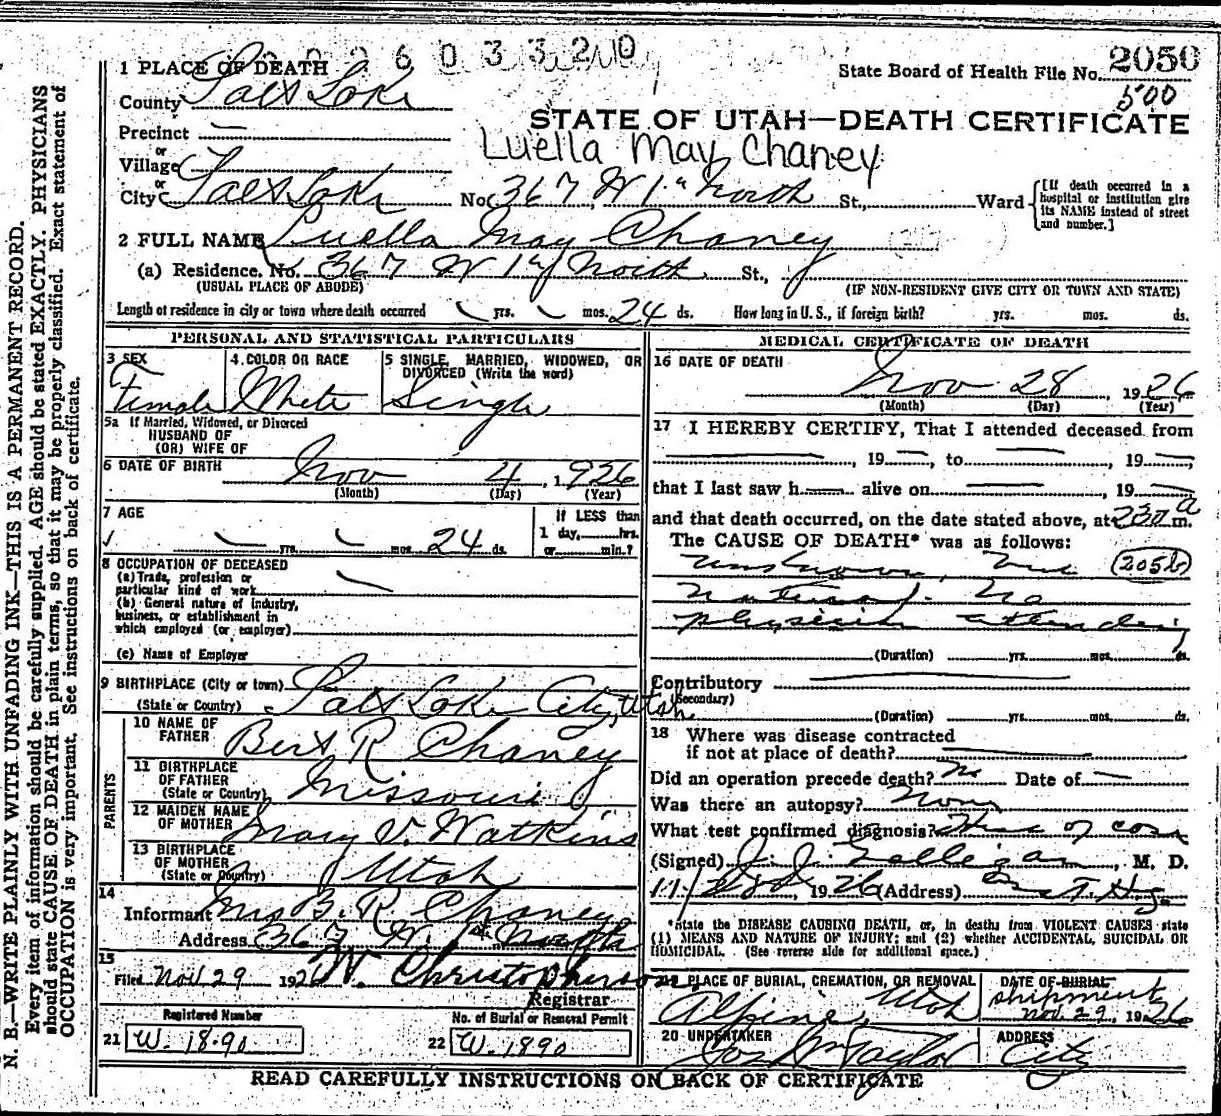 2 6 0 3 3 2 0
1 PLACE OF DEATH
State Board of Health File No. 2050
500
County Salt Lake
STATE OF UTAH—DEATH CERTIFICATE
Precinct —
or
Luella May Chaney
Village
or
City Salt Lake No. 367 W 1st North St., Ward
[If death occurred in a hospital or institution give its NAME instead of street and number.]
2 FULL NAME Luella May Chaney
(a) Residence. No. 367 W 1st North St.,
(USUAL PLACE OF ABODE) (IF NON-RESIDENT GIVE CITY OR TOWN AND STATE)
Length of residence in city or town where death occurred yrs. mos. 24 ds. How long in U. S., if foreign birth? yrs. mos. ds.
PERSONAL AND STATISTICAL PARTICULARS
3 SEX 4 COLOR OR RACE 5 SINGLE, MARRIED, WIDOWED, OR DIVORCED (Write the word)
Female White Single
5a If Married, Widowed, or Divorced
HUSBAND OF
(OR) WIFE OF
6 DATE OF BIRTH Nov 4, 1926
(Month) (Day) (Year)
7 AGE
If LESS than
yrs. mos. 24 ds. 1 day, hrs.
or min.?
8 OCCUPATION OF DECEASED
(a) Trade, profession or
particular kind of work
(b) General nature of industry,
business, or establishment in
which employed (or employer)
(c) Name of Employer
9 BIRTHPLACE (City or town)
(State or Country) Salt Lake City, Utah
PARENTS
10 NAME OF
FATHER Bert R Chaney
11 BIRTHPLACE
OF FATHER
(State or Country) Missouri
12 MAIDEN NAME
OF MOTHER Mary V. Watkins
13 BIRTHPLACE
OF MOTHER
(State or Country) Utah
14
Informant Mrs B. R Chaney
Address 367 W. 1st North
15
Filed Nov 29 1926 W. Christopherson
Registrar
Registered Number No. of Burial or Removal Permit
21 W. 1890 22 W. 1890
MEDICAL CERTIFICATE OF DEATH
16 DATE OF DEATH
Nov 28, 1926
(Month) (Day) (Year)
17 I HEREBY CERTIFY, That I attended deceased from
—, 19—, to —, 19—,
that I last saw h— alive on —, 19—
and that death occurred, on the date stated above, at 230 a m.
The CAUSE OF DEATH* was as follows:
Unknown, (205b)
natural. No
physician attending
(Duration) yrs. mos. ds.
Contributory
(Secondary)
(Duration) yrs. mos. ds.
18 Where was disease contracted
if not at place of death?
Did an operation precede death? No Date of —
Was there an autopsy? None
What test confirmed diagnosis? of
(Signed) J. J. Galligan, M. D.
1926 (Address)
*State the DISEASE CAUSING DEATH, or, in deaths from VIOLENT CAUSES state
(1) MEANS AND NATURE OF INJURY; and (2) whether ACCIDENTAL, SUICIDAL OR
HOMICIDAL. (See reverse side for additional space.)
19 PLACE OF BURIAL, CREMATION, OR REMOVAL DATE OF BURIAL
Alpine, Utah shipment
Nov. 29, 1926
20 UNDERTAKER ADDRESS
Jos Wm Taylor City
READ CAREFULLY INSTRUCTIONS ON BACK OF CERTIFICATE
N. B.—WRITE PLAINLY WITH UNFADING INK—THIS IS A PERMANENT RECORD.
Every item of information should be carefully supplied. AGE should be stated EXACTLY. PHYSICIANS
should state CAUSE OF DEATH in plain terms, so that it may be properly classified. Exact statement of
OCCUPATION is very important. See instructions on back of certificate.